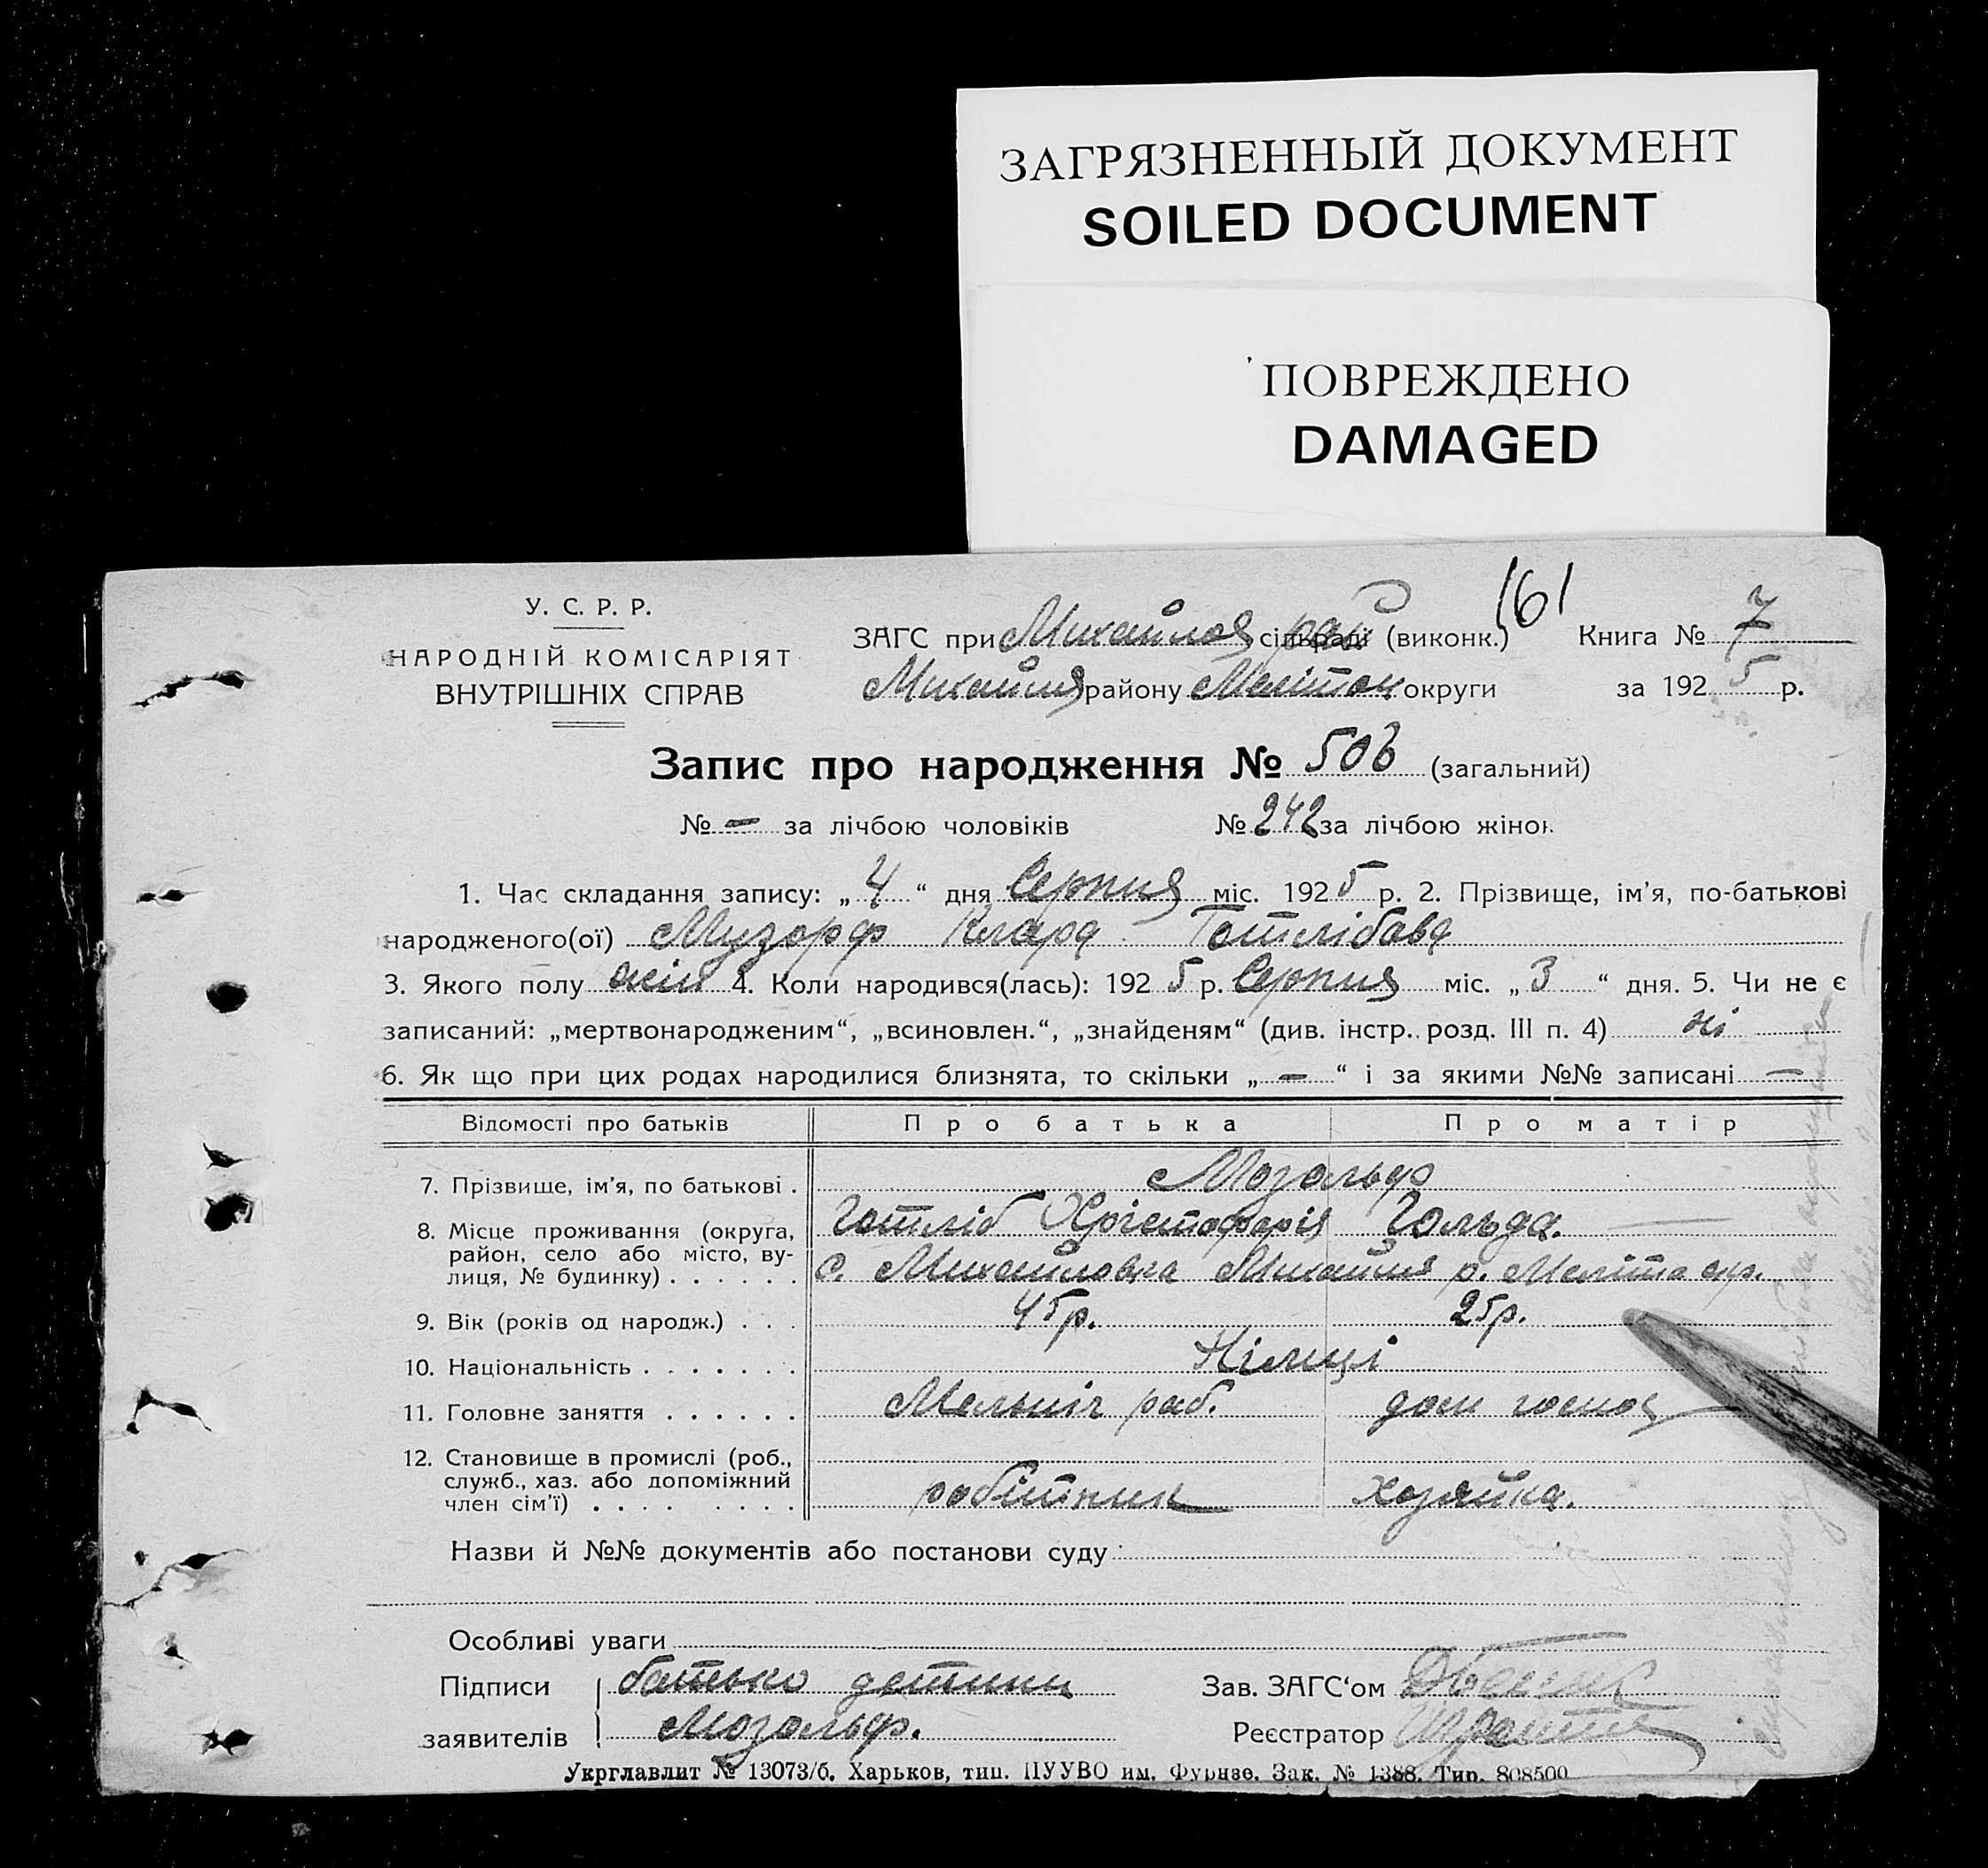 ЗАГРЯЗНЕННЫЙ ДОКУМЕНТ
SOILED DOCUMENT
ПОВРЕЖДЕНО
DAMAGED
161
У. С. Р. Р.
НАРОДНІЙ КОМІСАРІЯТ
ВНУТРІШНІХ СПРАВ
ЗАГС при Михайлов рай сільраді (виконк.) Книга № 7
Михайля району Меліток округи за 1925 р.
Запис про народження № 506 (загальний)
№ — за лічбою чоловіків № 242 за лічбою жінок
1. Час складання запису: „4“ дня Серпня міс. 1925 р. 2. Прізвище, ім’я, по-батькові
народженого(ої) Музорф Клара Готлібова
3. Якого полу жін 4. Коли народився(лась): 1925 р. Серпня міс. „3“ дня. 5. Чи не є
записаний: „мертвонародженим“, „всиновлен.“, „знайденям“ (див. інстр. розд. III п. 4) ні
6. Як що при цих родах народилися близнята, то скільки „—“ і за якими №№ записані —
Відомості про батьків Про батька Про матір
7. Прізвище, ім’я, по батькові . Мозольф
Готліб Хрістофорія Гольда.
8. Місце проживання (округа, район, село або місто, ву-
лиця, № будинку) . . . . . . с. Михайловка Михайля р. Меліто окр.
9. Вік (років од народж.) . . . 45р. 25р.
10. Національність . . . . . . . Німці
11. Головне заняття . . . . . . Мельнік раб. дом госпо
12. Становище в промислі (роб.,
служб., хаз. або допоміжний
член сім’ї) . . . . . . . . . робітник хозяйка.
Назви й №№ документів або постанови суду
Особливі уваги
Підписи батько детини Зав. ЗАГС‘ом
заявителів Мозольф. Реєстратор
Укрглавлит № 13073/б. Харьков, тип. ПУУВО им. Фрунзе. Зак. № 1388. Тир. 808500